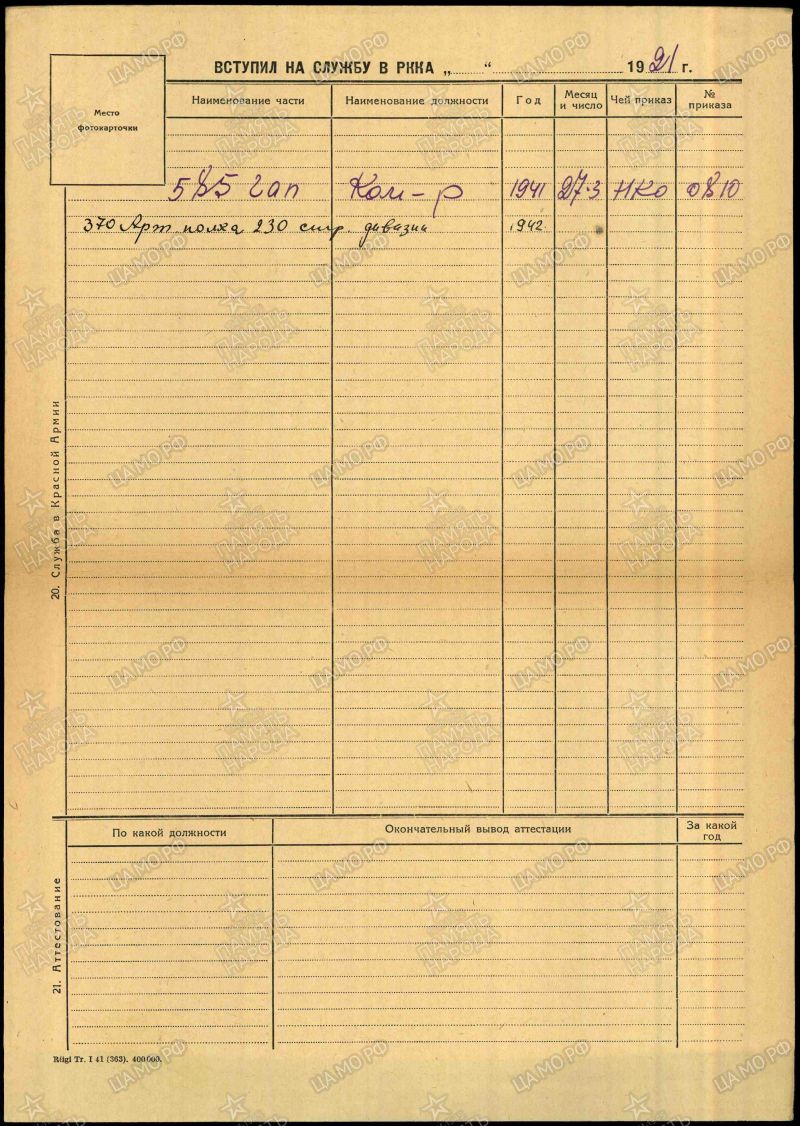 ВСТУПИЛ НА СЛУЖБУ В РККА „ “ 1921 г.
Место
фотокарточки
Наименование части Наименование должности Год Месяц и число Чей приказ № приказа
585 гап Ком-р 1941 27.3 НКО 0810
370 Арт. полка 230 стр. дивазии 1942
20. Служба в Красной Армии
По какой должности Окончательный вывод аттестации За какой год
21. Аттестование
Riigi Tr. I 41 (363). 400 000.
ЦАМО.РФ
ПАМЯТЬ НАРОДА